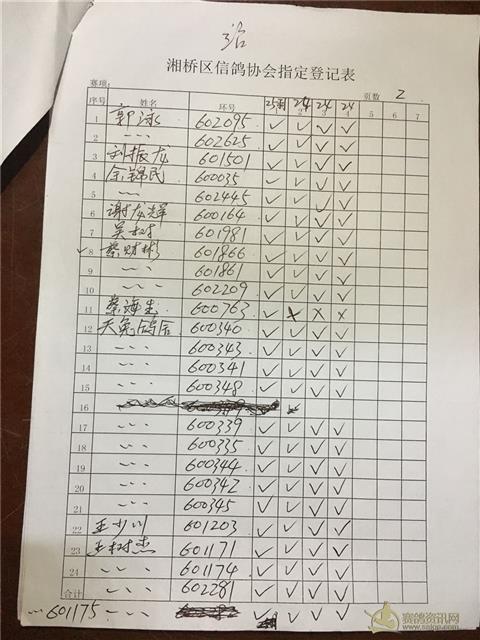 湘桥区信鸽协会指定登记表
赛项: 页数 2
序号 姓名 环号 1 2 3 4 5 6 7
1 郭泳 602095 ✓ ✓ ✓ ✓
2 〃 602625 ✓ ✓ ✓ ✓
3 刘振龙 601501 ✓ ✓ ✓ ✓
4 余锦民 600035 ✓ ✓ ✓ ✓
5 〃 602445 ✓ ✓ ✓ ✓
6 谢龙辉 600164 ✓ ✓ ✓ ✓
7 吴树 601981 ✓ ✓ ✓ ✓
✓ 8 蔡财彬 601866 ✓ ✓ ✓ ✓
9 〃 601861 ✓ ✓ ✓ ✓
10 〃 602209 ✓ ✓ ✓ ✓
11 蔡海生 600763 ✓ × × ×
12 天兔鸽舍 600340 ✓ ✓ ✓ ✓
13 〃 600343 ✓ ✓ ✓ ✓
14 〃 600341 ✓ ✓ ✓ ✓
15 〃 600348 ✓ ✓ ✓ ✓
16
17 〃 600339 ✓ ✓ ✓ ✓
18 〃 600335 ✓ ✓ ✓ ✓
19 〃 600344 ✓ ✓ ✓ ✓
20 〃 600342 ✓ ✓ ✓ ✓
21 〃 600345 ✓ ✓ ✓ ✓
22 王少川 601203 ✓ ✓ ✓ ✓
23 王树杰 601171 ✓ ✓ ✓ ✓
24 〃 601174 ✓ ✓ ✓ ✓
合计 〃 602281 ✓ ✓ ✓ ✓
601175 〃 ✓ ✓ ✓ ✓
赛鸽资讯网
www.saigp.com